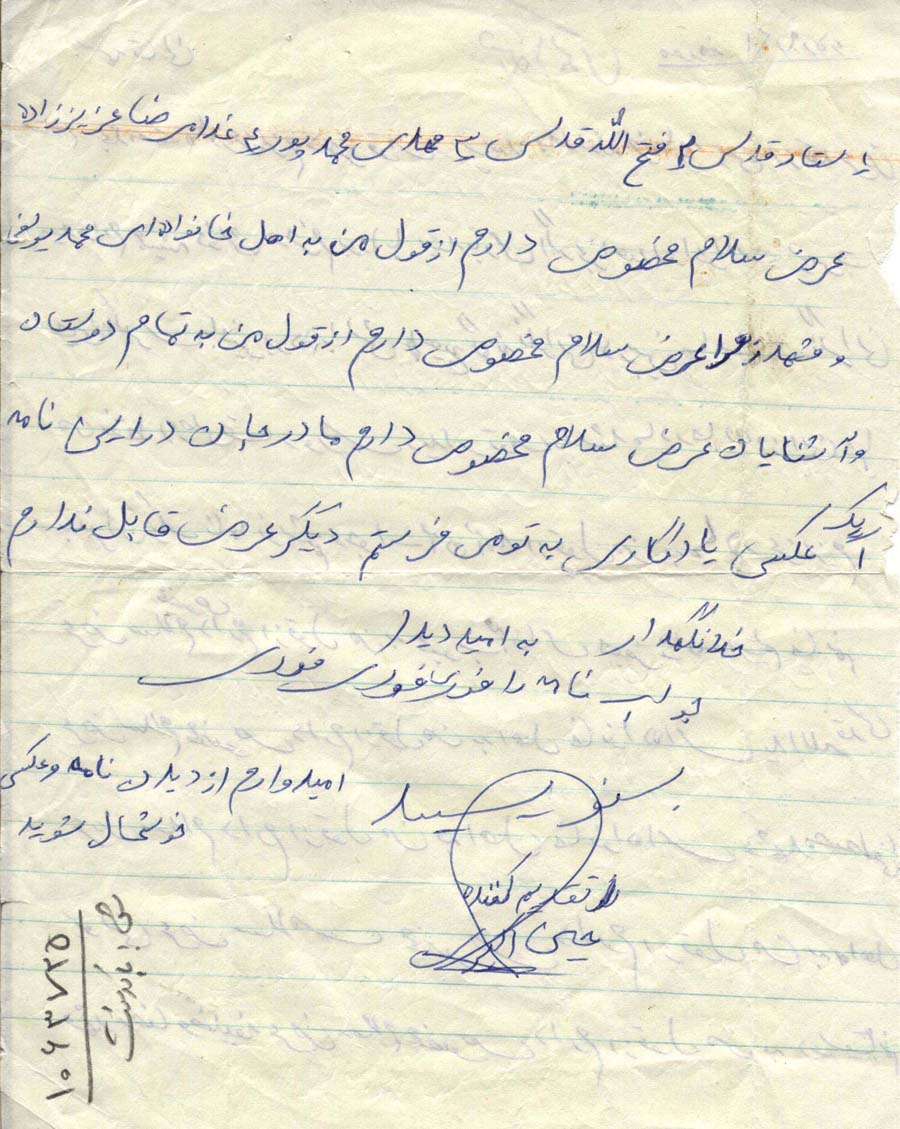 ۱ ستار قدسی ۲ فتح الله قدسی ۳ مهدی محمد پور ۴ غلامرضا عزیززاده
عرض سلام مخصوص دارم از قول من به اهل خانواده ای محمد
عرض سلام مخصوص دارم از قول من به تمام دوستان
و آشنایان عرض سلام مخصوص دارم مادر جان در این نامه
یک عکسی یادگاری به تو می فرستم دیگر عرض قابل ندارم
خدا نگهدار به امید دیدار
جواب نامه را فوری فوری فوری
بنویسید
امیدوارم از دیدن نامه و عکسی
خوشحال شوید
تقدیم کننده
یحیی
۱۰۶۳۸۷۵